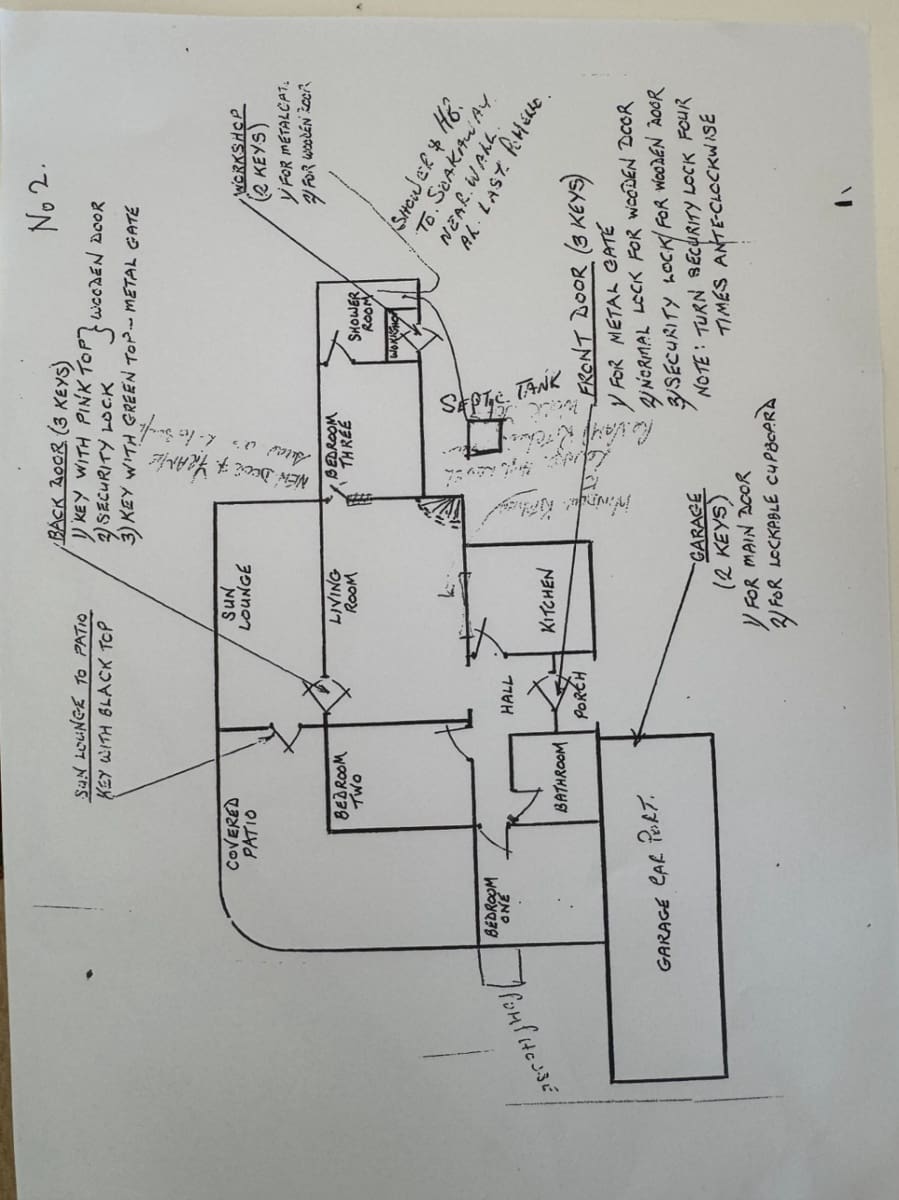 No 2.
BACK DOOR (3 KEYS)
1) KEY WITH PINK TOP } WOODEN DOOR
2) SECURITY LOCK
3) KEY WITH GREEN TOP - METAL GATE
SUN LOUNGE TO PATIO
KEY WITH BLACK TOP
WORKSHOP
(2 KEYS)
1) FOR METAL GAT.
2) FOR WOODEN DOOR
SHOWER & HB.
TO. SOAKAWAY
NEAR. WALL
LAST.
NEW DOOR & FRAME
COVERED
PATIO
SUN
LOUNGE
BEDROOM
TWO
LIVING
ROOM
BEDROOM
THREE
SHOWER
ROOM
WORKSHOP
SEPTIC TANK
BEDROOM
ONE
HALL
BATHROOM
PORCH
KITCHEN
GARAGE CAR PORT.
FRONT DOOR (3 KEYS)
1) FOR METAL GATE
2) NORMAL LOCK FOR WOODEN DOOR
3) SECURITY LOCK FOR WOODEN DOOR
NOTE: TURN SECURITY LOCK FOUR
TIMES ANTE-CLOCKWISE
GARAGE
(2 KEYS)
1) FOR MAIN DOOR
2) FOR LOCKABLE CUPBOARD